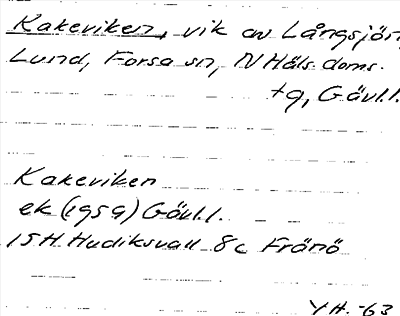 Kakeviken, vik av Långsjön,
Lund, Forsa sn, N Häls. doms.
tg, Gävl.l.
Kakeviken
ek (1959) Gävl.l.
15H Hudiksvall 8c Fränö
YH. -63